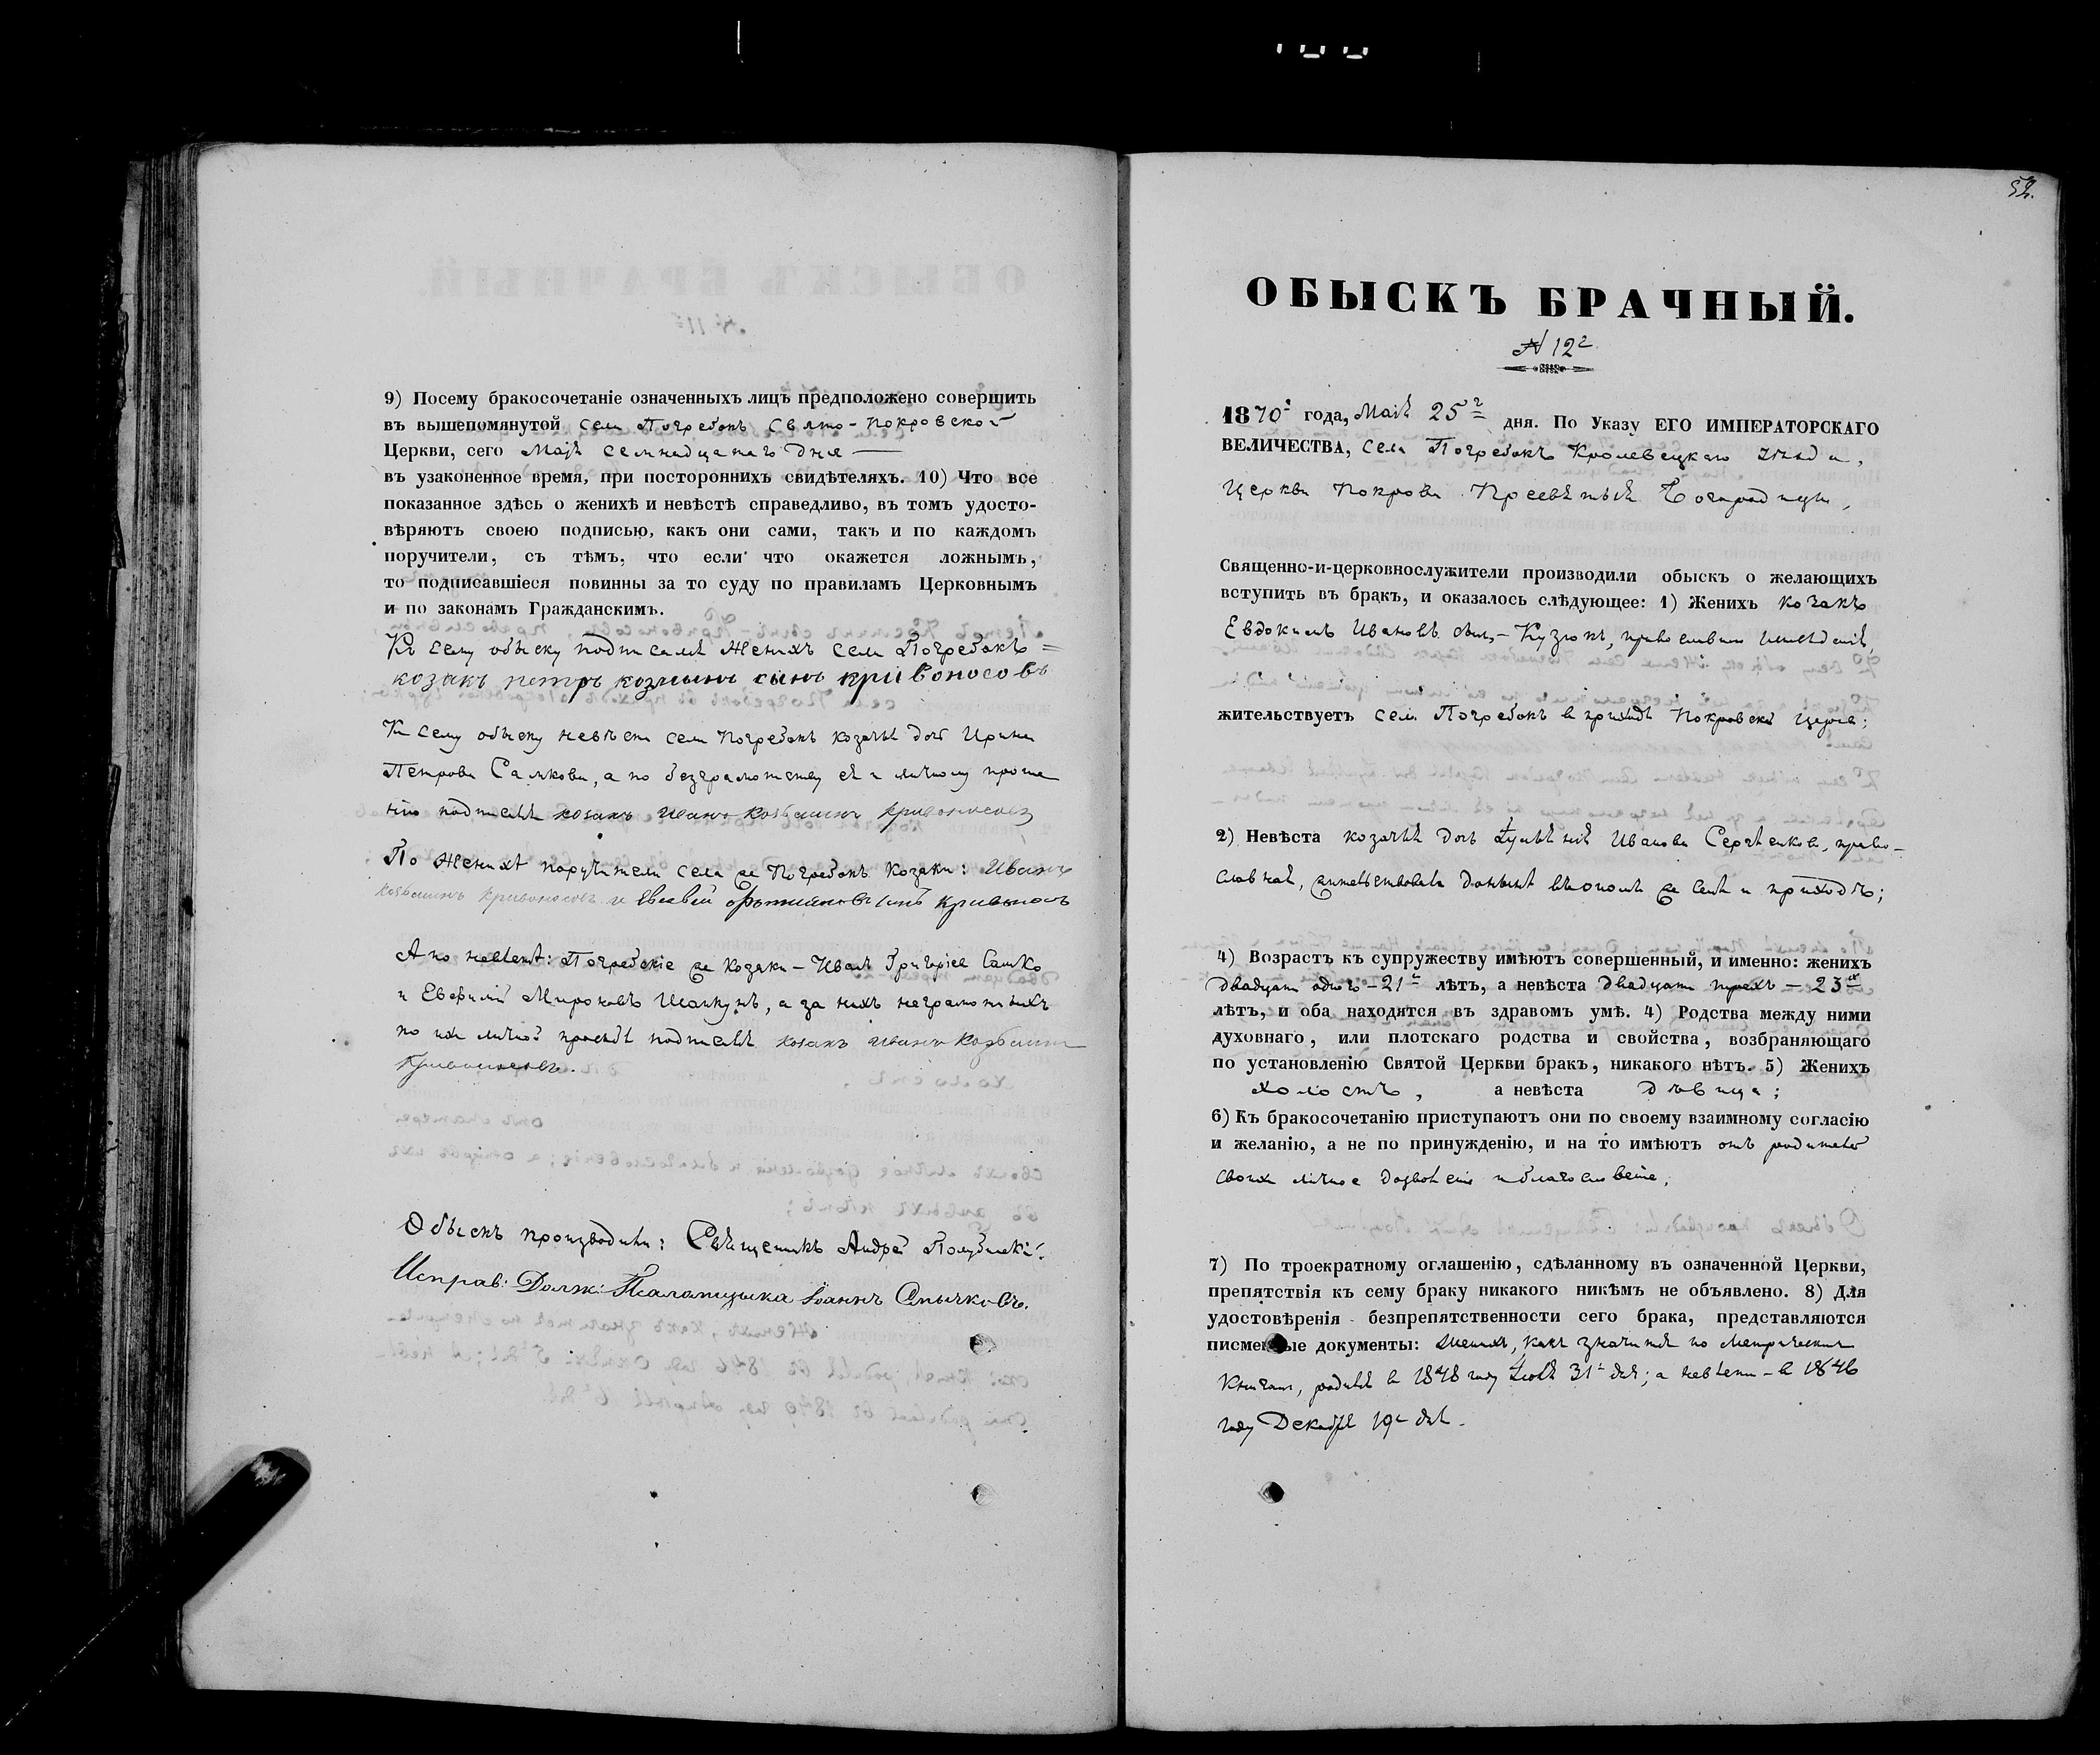 9) Посему бракосочетаніе означенныхъ лицъ предположено совершить
въ вышепомянутой села Погребокъ Свято-Покровской
Церкви, сего Маія семнадцатаго дня —
въ узаконенное время, при постороннихъ свидѣтеляхъ. 10) Что все
показанное здѣсь о женихѣ и невѣстѣ справедливо, въ томъ удосто-
вѣряютъ своею подписью, какъ они сами, такъ и по каждомъ
поручители, съ тѣмъ, что если что окажется ложнымъ,
то подписавшіеся повинны за то суду по правиламъ Церковнымъ
и по законамъ Гражданскимъ.
Къ сему обыску подписался женихъ села Погребокъ =
козакъ петръ козминъ сынъ кривоносовъ
К сему обыску невѣста села Погребокъ козачья дочь Ирина
Петрова Самкова, а по безграмотству ея и личному проше
нію подписался козакъ иванъ козьминъ кривоносовъ
По женихѣ поручители села Погребокъ козаки: иванъ
козьминъ кривоносовъ и кривоносъ
А по невѣстѣ: Погребскіе козаки – Иванъ Григоріев Самко
и Евфимій Мироновъ Шапкунъ, а за нихъ неграмотныхъ
по ихъ личной просьбѣ подписался козакъ иванъ козьмин
кривоносовъ.
Обыскъ производили: Священникъ Андрей
Исправ: Долж: Псаломщыка Іоаннъ Смычковъ.
52.
ОБЫСКЪ БРАЧНЫЙ.
№ 12
1870 года, Маія 25 дня. По Указу ЕГО ИМПЕРАТОРСКАГО
ВЕЛИЧЕСТВА, села Погребокъ Кролевецкаго уѣзда,
Церкви Покрова Пресвятыя Богородицы,
Священно-и-церковнослужители производили обыскъ о желающихъ
вступить въ бракъ, и оказалось слѣдующее: 1) Женихъ козакъ
Евдокимъ Ивановъ сынъ – Кузюкъ, православн
жительствуетъ села Погребокъ в приходѣ Покровской церкви;
2) Невѣста козачья дочь Іуліанія Иванова Сергѣенкова, право-
славная, жительствовала донынѣ въ селѣ и приходѣ;
4) Возрастъ къ супружеству имѣютъ совершенный, и именно: женихъ
двадцати одного – 21 лѣтъ, а невѣста двадцати трехъ – 23х
лѣтъ, и оба находятся въ здравомъ умѣ. 4) Родства между ними
духовнаго, или плотскаго родства и свойства, возбраняющаго
по установленію Святой Церкви бракъ, никакого нѣтъ. 5) Женихъ
холостъ, а невѣста дѣвица;
6) Къ бракосочетанію приступаютъ они по своему взаимному согласію
и желанію, а не по принужденію, и на то имѣютъ отъ родителей
своихъ личное дозволеніе и благословеніе;
7) По троекратному оглашенію, сдѣланному въ означенной Церкви,
препятствія къ сему браку никакого никѣмъ не объявлено. 8) Для
удостовѣренія безпрепятственности сего брака, представляются
писменные документы: женихъ, какъ значится по метрическим
книгамъ, родился в 1848 году Іюля 31 дня; а невѣста – в 1846
году Декабря 19 дня.